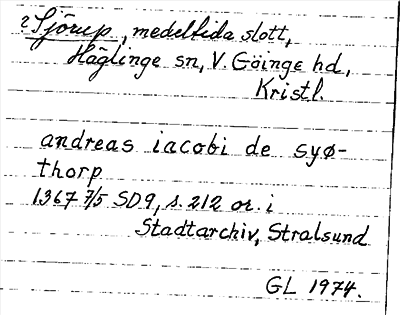 2 Sjörup, medeltida slott,
Häglinge sn, V. Göinge hd,
Kristl.
andreas iacobi de syø-
thorp
1367 7/5 SD9, s. 212 or. i
Stadtarchiv, Stralsund
GL 1974.